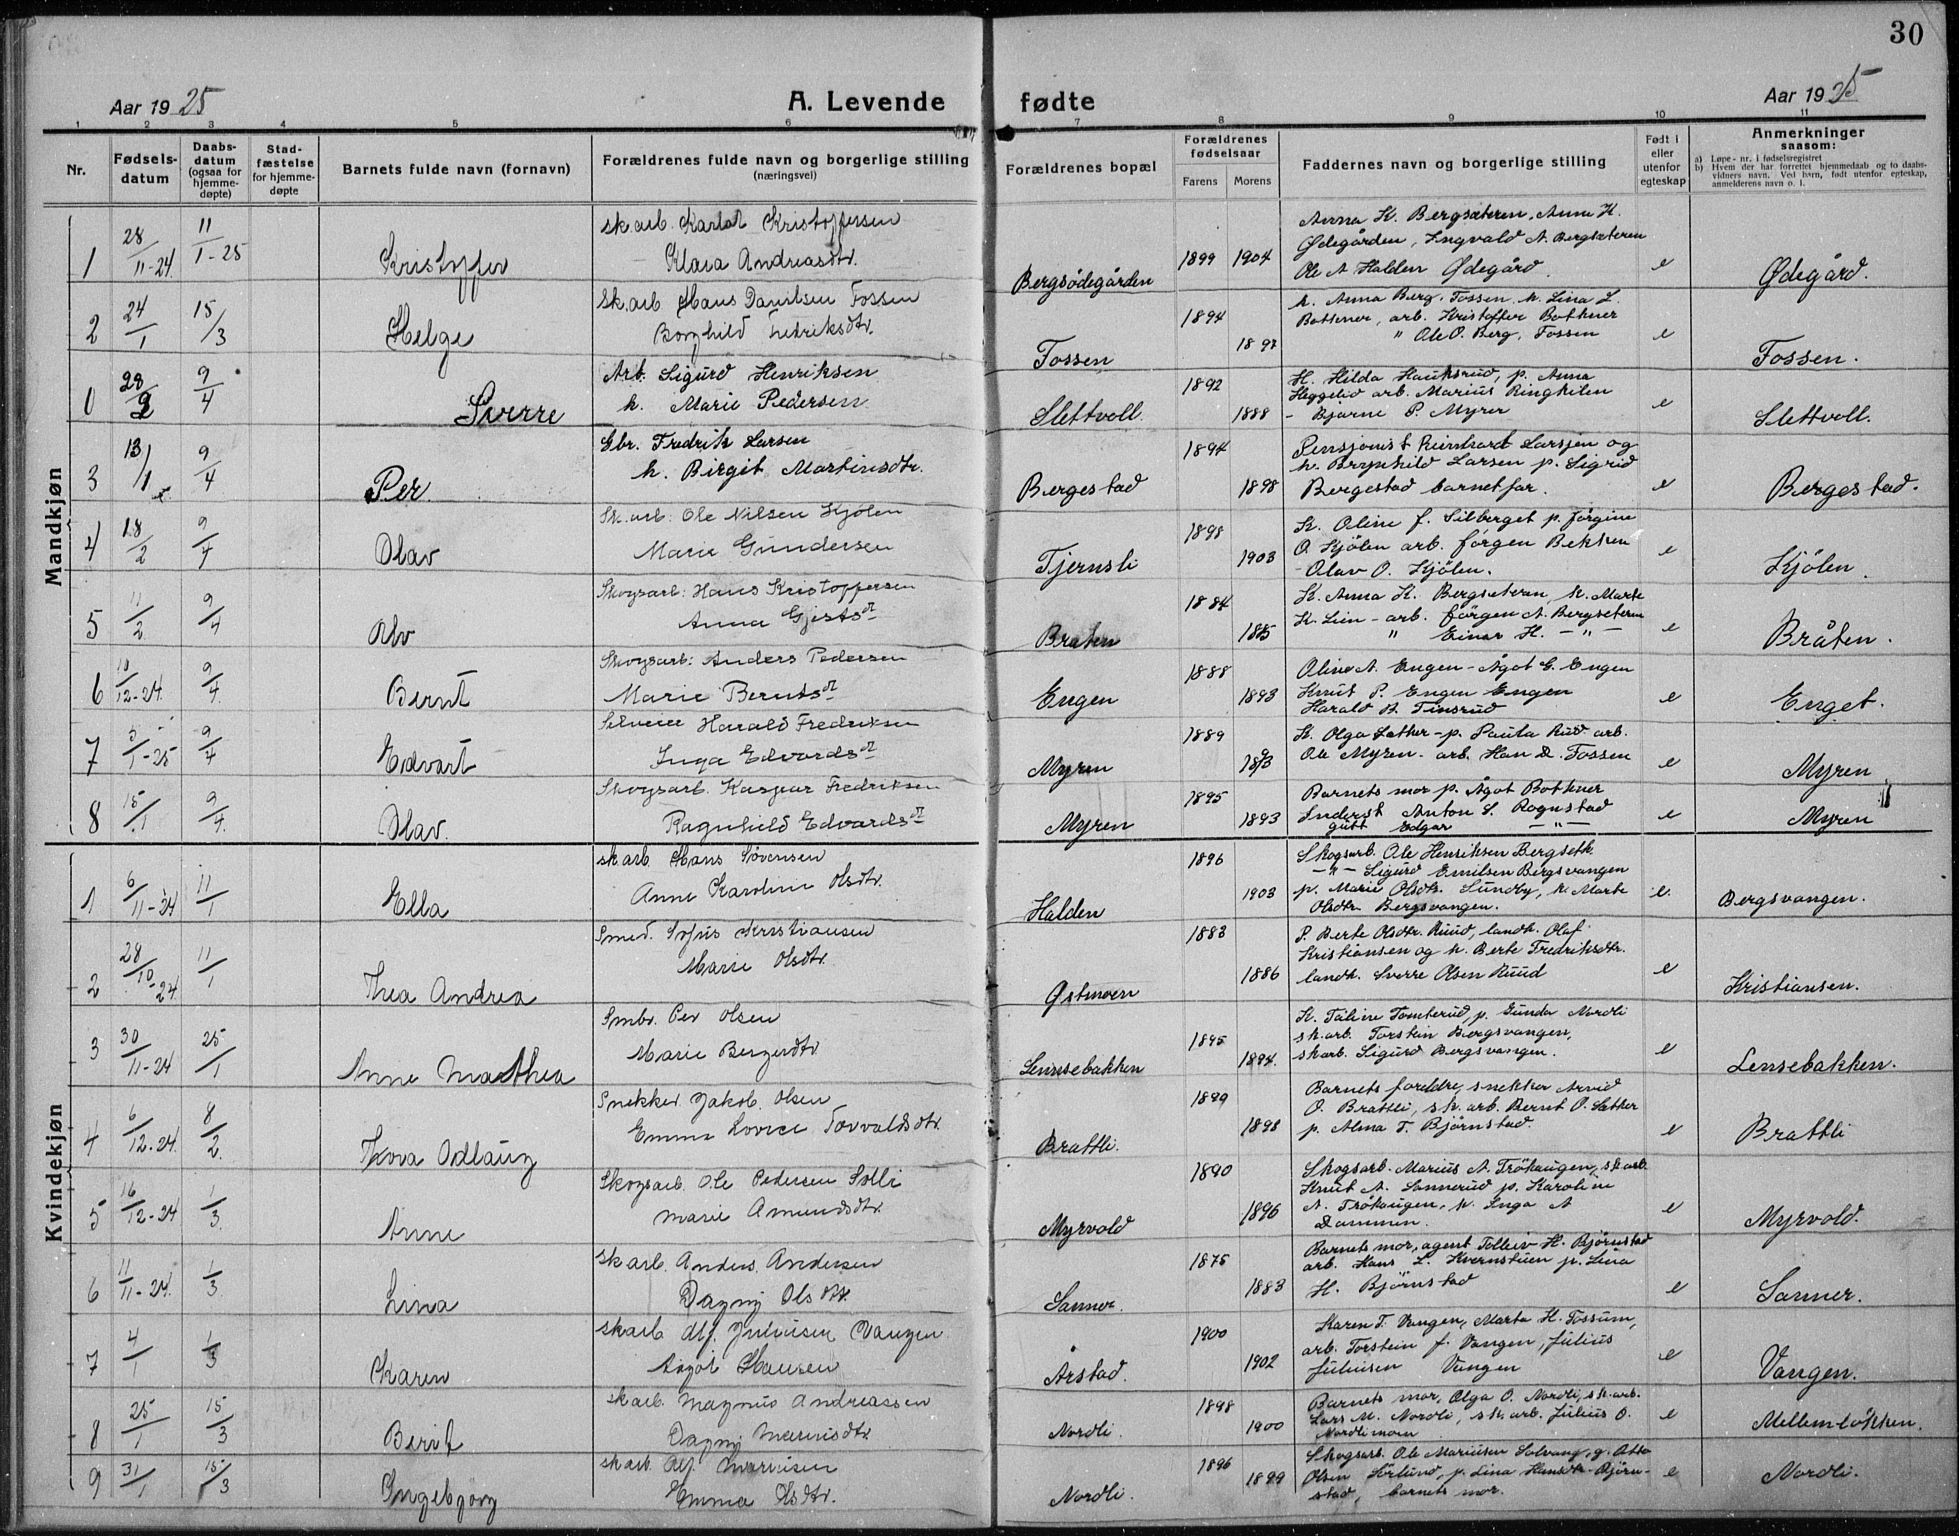 30
Aar 1925 A. Levende fødte Aar 1925
1 2 3 4 5 6 7 8 9 10 11
Nr. Fødsels-datum Daabs-datum (ogsaa for hjemme-døpte) Stad-fæstelse for hjemme-døpte Barnets fulde navn (fornavn) Forældrenes fulde navn og borgerlige stilling (næringsvei) Forældrenes bopæl Forældrenes fødselsaar Farens Morens Faddernes navn og borgerlige stilling Født i eller utenfor egteskap Anmerkninger saasom:
a) Løpe-nr. i fødselsregistret
b) Hvem der har forrettet hjemmedaab og to daabs-vidners navn. Ved barn, født utenfor egteskap, anmelderens navn o. l.
Mandkjøn
1 28/11-24 11/1-25 Kristoffer sk.arb. Karlot Kristoffersen
Klara Andreasdtr. Bergsødegården 1899 1904 Anna K. Bergsæteren, Anna H.
Ødegården, Ingvald A. Bergsæteren
Ole A Halden Ødegård. e Ødegård.
2 24/1 15/3 Helge Sk.arb Hans Danielsen Fossen
Borghild Fredriksdtr. Fossen 1894 1897 k. Anna Berg, Fossen, k. Lina L.
Bottener, arb. Kristoffer Bothner
" Ole O. Berg, Fossen e Fossen.
0 28/2 9/4 Sverre Arb. Sigurd Henriksen
k. Marie Pedersen Slettvoll 1892 1888 K. Hilda Hauksrud, p. Anna
Heggelid arb. Marius Ringkilen
- Bjarne P. Myrer e Slettvoll.
3 13/1 9/4 Per Gbr. Fredrik Larsen
k. Birgit Martinsdtr. Bergestad 1894 1898 Pensjonist Reinhard Larssen og
k. Brynhild Larsen p. Sigrid
Bergestad barnet far. e Bergestad.
4 18/2 9/4 Olav Sk.arb. Ole Nilsen Kjølen
Marie Gundersen Tjernsli 1898 1903 K. Oline J. Silberget p. Jørgine
O. Kjølen arb. Jørgen Bekken
- Olav O. Kjølen. e Kjølen
5 11/2 9/4 Alv Skogsarb: Hans Kristoffersen
Anna Gjertsdt Bråten 1884 1885 K. Anna K. Bergseteren, k. Marte
K. Lien - arb. Jørgen A. Bergseteren
" Einar H. - " - e Bråten.
6 10/12-24. 9/4. Bernt Skogsarb: Anders Pedersen
Marie Berntsdt Engen 1888 1893 Oline A. Engen - Ågot G. Engen
Knut P. Engen Engen
Harald B. Tinsrud e Enget.
7 5/1-25 9/4 Edvart Harald Fredriksen
Inga Edvardsdt Myren 1889 1893 K. Olga Sæther - p. Paula Rud arb.
Ole Myren - arb. Han D. Fossen e Myren
8 15/1 9/4. Olav. Skogsarb. Kaspar Fredriksen
Ragnhild Edvardsdt Myren 1895 1893 Barnets mor p. Ågot Bothner
Inderst Anton S. Rognstad
gutt Edgar - " - e Myren
Kvindekjøn
1 6/11-24 11/1 Ella sk arb. Hans Sørensen
Anne Karoline Olsdtr. Halden 1896 1903 Skogsarb. Ole Henriksen Bergseth.
- " - Sigurd Emilsen Bergsvangen
p. Marie Olsdtr. Sundby, k. Marte
Olsdtr. Bergsvangen. e. Bergsvangen.
2 28/10 24 11/1 Thea Andrea Smed. Sofus Kristiansen
Marie Olsdtr. Østmoen 1883 1886 P. Berte Olsdtr. Ruud, landh. Olaf
Kristiansen og k. Berte Fredriksdtr.
landh. Sverre Olsen Ruud e Kristiansen.
3 30/11-24 25/1 Anne Mathea Smbr. Per Olsen
Marie Bergerdtr Lensebakken 1895 1894. K. Taline Tomterud, p. Gunda Nordli
sk.arb Torstein Bergsvangen,
skarb. Sigurd Bergsvangen. e Lensebakken.
4 6/12-24. 8/2. Tova Odlaug Snekker Jakob Olsen
Emma Lovise Torvaldsdtr. Brattli. 1899 1898 Barnets foreldre, snekker Arvid
O. Brattli, sk.arb. Bernt O. Sæther
p. Alma T. Bjørnstad e Brattli
5 16/12-24 1/3. Anne Skogsarb. Ole Pedersen Sølli
Marie Amundsdtr. Myrvold 1890 1896 Skogsarb. Marius A. Trøhaugen, sk arb.
Knut A. Sannerud p. Karoline
A. Trøhaugen, k. Inga A
Dammen. e Myrvold.
6 11/11-24. 1/3 Lina sk arb. Anders Andersen
Dagny Olsdtr. Sanner. 1875 1883 Barnets mor, agent Tolleiv H. Bjørnstad
arb. Hans L. Kvernstuen p. Lina
H. Bjørnstad e Sanner.
7 4/1 1/3 Karen skarb Alf. Juliusen Vangen
Aagot Hansen Årstad. 1900 1902 Karen T. Vangen, Marta H. Fossum,
arb. Torstein J. Vangen, Julius
Juliusen Vangen e Vangen.
8 25/1 15/3 Berit skarb. Magnus Andreassen
Dagny Mariusdtr. Nordli. 1898 1900 Barnets mor, Olga O. Nordli, sk.arb.
Lars M. Nordli, sk.arb. Julius O.
Nordlimoen e Mellemløkken.
9 31/1 15/3 Ingebjørg skarb. Alf. Mariusen
Emma Olsdtr. Nordli. 1896 1899 Skogsarb. Ole Mariusen Solvang, g. Otto
Olsen Sørlund, p. Lina Hansdtr. Bjørn-
stad, barnets mor. e Nordli.